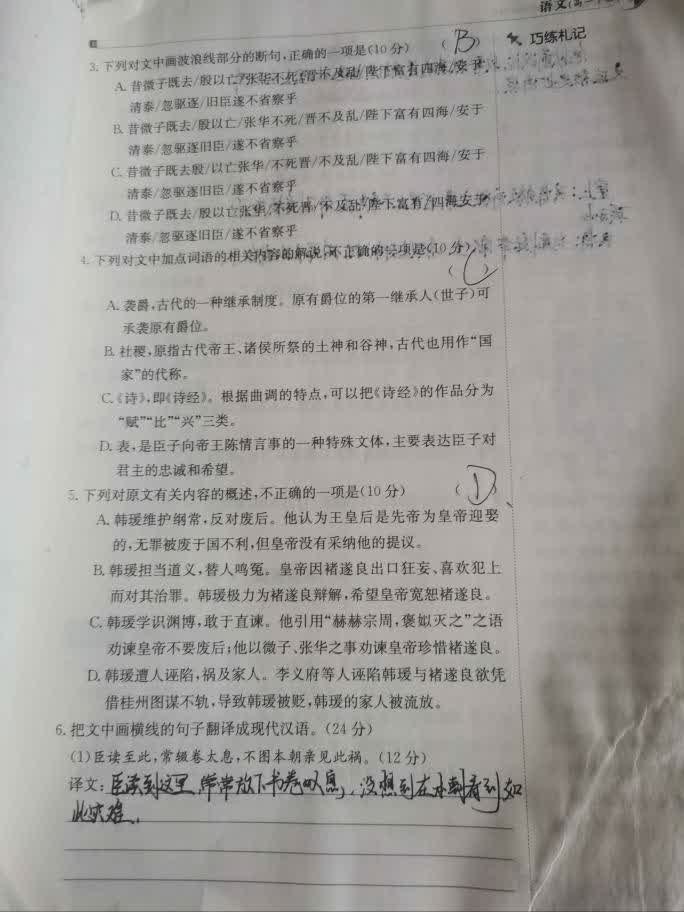 语文
巧练札记
3. 下列对文中画波浪线部分的断句,正确的一项是(10分) ( B )
A. 昔微子既去/殷以亡/张华不死/晋不及乱/陛下富有四海/安于
清泰/忽驱逐/旧臣遂不省察乎
B. 昔微子既去/殷以亡/张华不死/晋不及乱/陛下富有四海/安于
清泰/忽驱逐旧臣/遂不省察乎
C. 昔微子既去殷/以亡张华/不死晋/不及乱/陛下富有四海/安于
清泰/忽驱逐旧臣/遂不省察乎
D. 昔微子既去/殷以亡张华/不死晋/不及乱/陛下富有/四海安于
清泰/忽驱逐旧臣/遂不省察乎
4. 下列对文中加点词语的相关内容的解说,不正确的一项是(10分)
( C )
A. 袭爵,古代的一种继承制度。原有爵位的第一继承人(世子)可
承袭原有爵位。
B. 社稷,原指古代帝王、诸侯所祭的土神和谷神,古代也用作“国
家”的代称。
C.《诗》,即《诗经》。根据曲调的特点,可以把《诗经》的作品分为
“赋”“比”“兴”三类。
D. 表,是臣子向帝王陈情言事的一种特殊文体,主要表达臣子对
君主的忠诚和希望。
5. 下列对原文有关内容的概述,不正确的一项是(10分) ( D )
A. 韩瑗维护纲常,反对废后。他认为王皇后是先帝为皇帝迎娶
的,无罪被废于国不利,但皇帝没有采纳他的提议。
B. 韩瑗担当道义,替人鸣冤。皇帝因褚遂良出口狂妄、喜欢犯上
而对其治罪。韩瑗极力为褚遂良辩解,希望皇帝宽恕褚遂良。
C. 韩瑗学识渊博,敢于直谏。他引用“赫赫宗周,褒姒灭之”之语
劝谏皇帝不要废后;他以微子、张华之事劝谏皇帝珍惜褚遂良。
D. 韩瑗遭人诬陷,祸及家人。李义府等人诬陷韩瑗与褚遂良欲凭
借桂州图谋不轨,导致韩瑗被贬,韩瑗的家人被流放。
6. 把文中画横线的句子翻译成现代汉语。(24分)
(1)臣读至此,常辍卷太息,不图本朝亲见此祸。(12分)
译文:臣读到这里,常常放下书卷叹息,没想到在本朝看到如
此灾难.